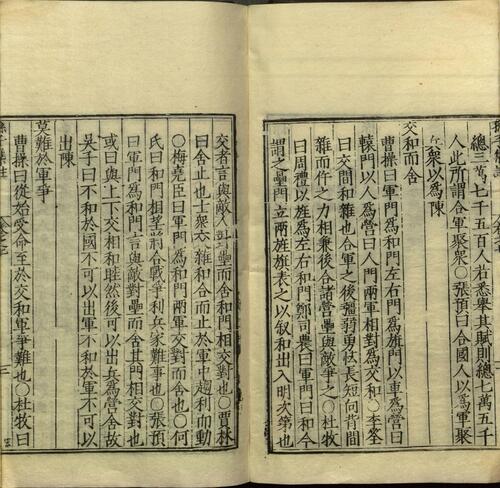 總三萬七千五百人若悉舉其賦則總七萬五千
人此所謂合軍聚衆○張預曰合國人以爲軍聚
兵衆以爲陳
交和而舍
曹操曰軍門爲和門左右門爲旗門以車爲營曰
轅門以人爲營曰人門兩軍相對爲交和○李筌
曰交間和雜也合軍之後彊弱勇怯長短向背間
雜而仵之力相兼後合諸營壘與敵爭之○杜牧
曰周禮以旌爲左右和門鄭司農曰軍門曰和今
謂之壘門立兩旌旗表之以叙和出入明次第也
交者言與敵人對壘而舍和門相交對也○賈林
曰舍止也士衆交雜和合而止於軍中趨利而動
○梅堯臣曰軍門爲和門兩軍交對而舍也○何
氏曰和門相望將合戰爭利兵家難事也○張預
曰軍門爲和門言與敵對壘而舍其門相交對也
或曰與上下交相和睦然後可以出兵爲營舍故
吳子曰不和於國不可以出軍不和於軍不可以
出陳
莫難於軍爭
曹操曰從始受命至於交和軍爭難也○杜牧曰